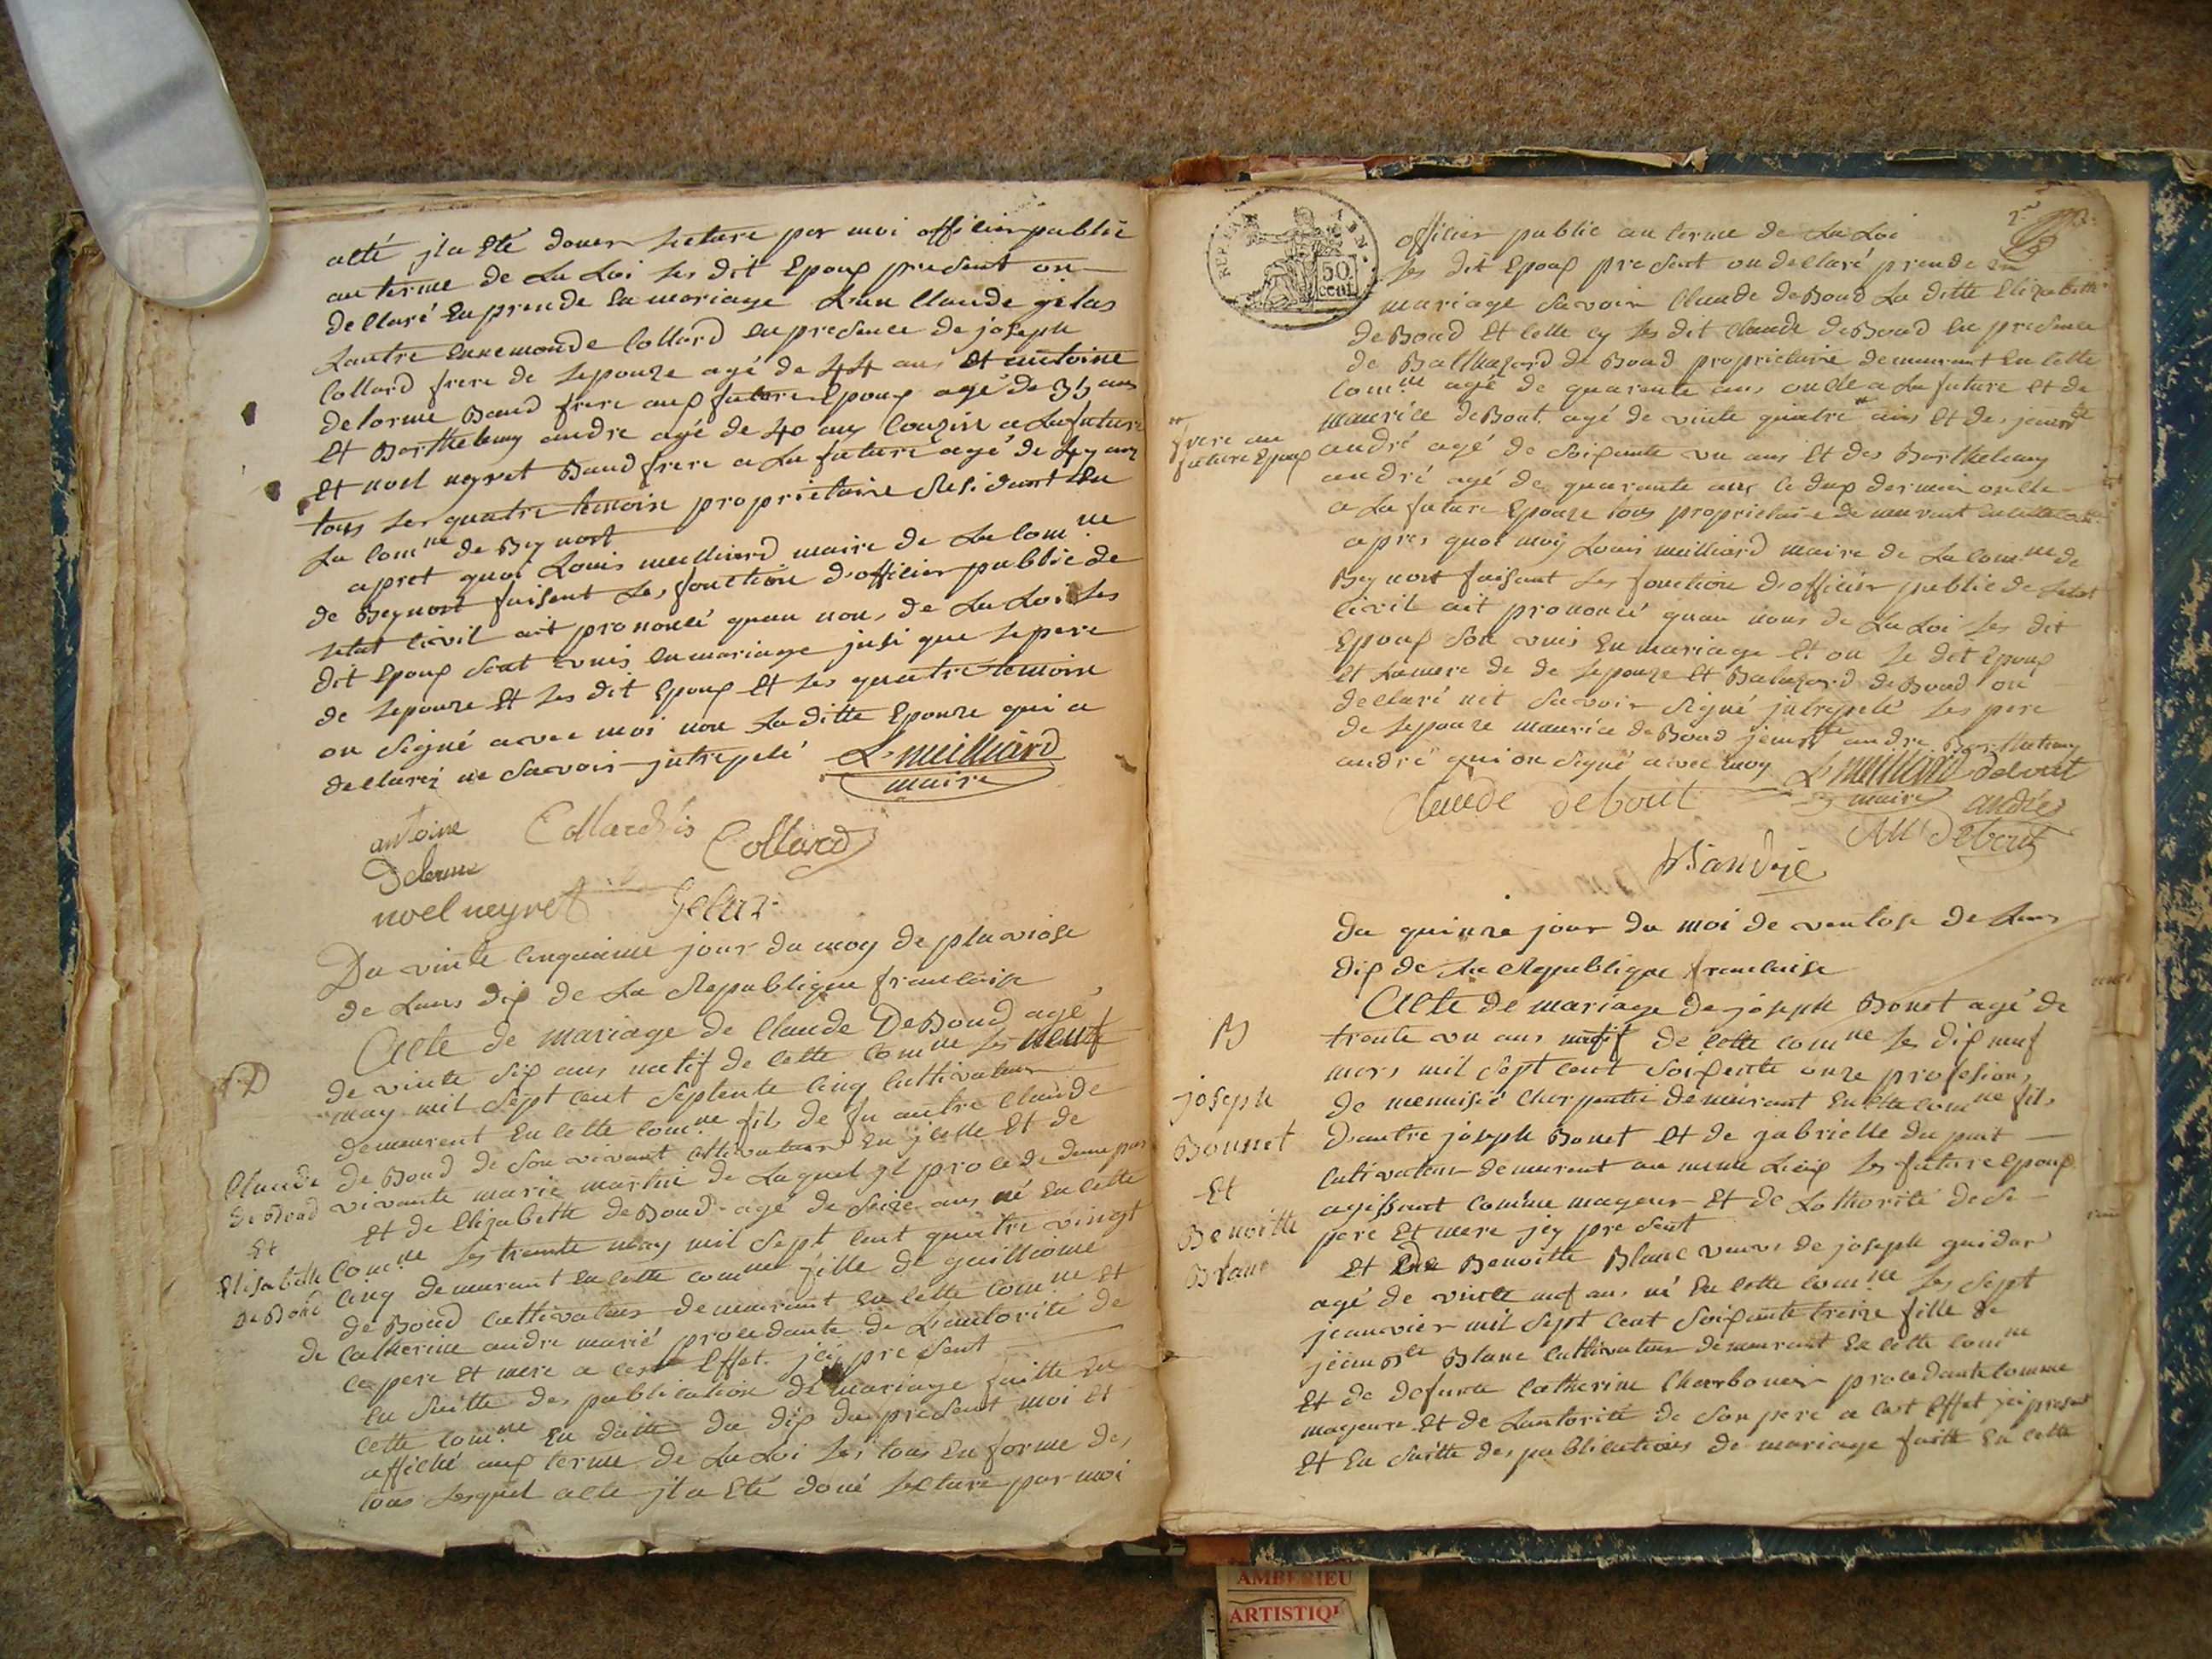 acté j'la Eté doner Lecture par moi officier public
au terme de La Loi Les dit Epoux present on
declaré En prende En mariage L'un Claude gelas
Lautre Ennemonde Collard En presence de joseph
Collard frere de Lepouze agé de 44 ans Et antoine
delorme Baud frere aux future Epoux agé de 35 ans
Et Barthelemy andre agé de 40 ans Couzin a La future
Et noel neyret Baud frere a La future agé de 47 ans
tous Les quatre temoin proprietaire Residant En
La Comne de Beynost
apret quoi Louis meilliard maire de La Comne
de Beynost faisent Les fonction d'officier public de
Letat Civil ait prononcé quau nom de La Loi Les
dit Epoux Sont unis En mariage jnsi que Lepere
de Lepouze Et Les dit Epoux Et Les quatre temoin
on Signé avec moi non La ditte Epouze qui a
declarez ne Savoir jntrepelé L. meilliard
maire
antoine Collard fis Collard
Delorme
noel neyret Gelaz
Du vinte Cinquieme jour du moy de pluviose
de Lans dix de La Republique francaise
Acte de mariage de Claude DeBoud agé
de vinte Six ans natif de Cette Comne Les neuf
D
may mil Sept Cent Septente Cinq Cultivateur
demeurent En Cette Comne fils de fu autre Claude
de Boud de Son vivant Cultivateur En jcelle Et de
Claude
DeBoud
Et
Elisabette
DeBoud
vivante marie martin de Laquel jl procede dune par
et de Elizabette deBoud agé de Seize ans né En Cette
Comne Les trente may mil Sept Cent quatre vingt
Cinq demeurant En Cette Comne fille de guilliome
de Boud Cultivateur demeurant En Cette Comne Et
de Catherine andre marié procedante de Lautorité de
Ce pere Et mere a Cest Effet jci present
En Suitte des publication de mariage faitte En
Cette Comne En datte du dix du present moi Et
affiché aux terme de La Loi Les tous En forme des
tous Lesquel acte j'la Eté doné Lecture par moi
REP. FRAN.
50
cent.
officier public au terme de La Loi
Les dit Epoux present on declaré prende En
mariage Savoir Claude deBoud La ditte Elizabette
deBoud Et Celle Cy Les dit Claude deBoud En presence
de Balthazard de Boud proprietaire demeurant En Cette
Comne agé de quarente ans, oncle a La future Et de
maurice deBout agé de vinte quatre ans Et des jean Bte
frere au
future Epoux
andré agé de Soixante un ans Et des Barthelemy
andré agé de quarante ans Ce dux dernier oncle
a La future Epouze tous proprietaire demeurant en cette Comne
apres quoi moy Louis meilliard maire de La Comne de
Beynost faisant Les fonction d'officier public de Letat
Civil ait prononcé quau nom de La Loi Les dit
Epoux Son unis En mariage Et on Le dit Epoux
Et Lamere de de Lepouze Et Balazard deBoud on
declaré net Savoir Signé jntrepelé Les pere
de Lepouze maurice deBoud jean Bte andre Barthelemy
andré qui on Signé avec moy L. meilliard debout
Claude debout maire andré
Mce Debout
B andre
du quinze jour du moi de ventose de Lans
dix de La Republique francaise
Acte de mariage de joseph Bonet agé de
B
trente un ans natif de Cette Comne Les dix neuf
mars mil Sept Cent Soixente onze profesion,
de menuisié Charpentié demeurant En Cette Comne fils
joseph
Bonnet
Et
Benoitte
Blanc
dautre joseph Bonet Et de gabrielle du puit
Cultivateur demeurant au meme Lieux Les future epoux
agissant Comme mageur Et de Lothorité de Se
pere Et mere jcy present
Et De Benoitte Blanc veuve de joseph guidar
agé de vinte neuf ans né En Cette Comne Les Sept
jeanvier mil Sept Cent Soixante treize fille de
jean Bte Blanc Cultivateur demeurant En Cette Comne
Et de defunte Catherine Charbonier procedante Comme
mageure Et de Lautorité de Son pere a Cest Effet jci present
Et En Suitte des publications de mariage faitte En Cette
AMBERIEU
ARTISTIQ